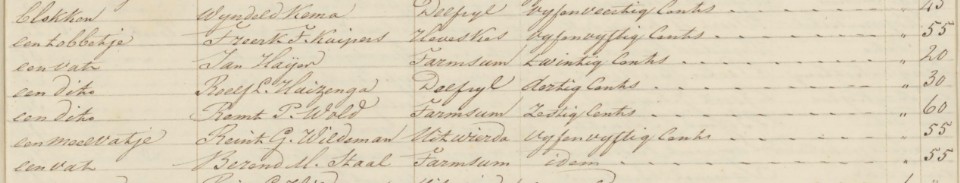 blokken Wyndeld Kema Delfzyl vyfenveertig Cents " 45
een tobbetje Freerk F. Kuipers Heveskes vyfenvyftig Cents " 55
een vat Jan Haijer Farmsum twintig Cents " 20
een dito Roelf L. Huizenga Delfzyl dertig Cents " 30
een dito Remt P. Wold Farmsum Zestig Cents " 60
een meelvatje Reint G. Wildeman Uitwierda vyfenvyftig Cents " 55
een vat Berend M. Staal Farmsum idem " 55